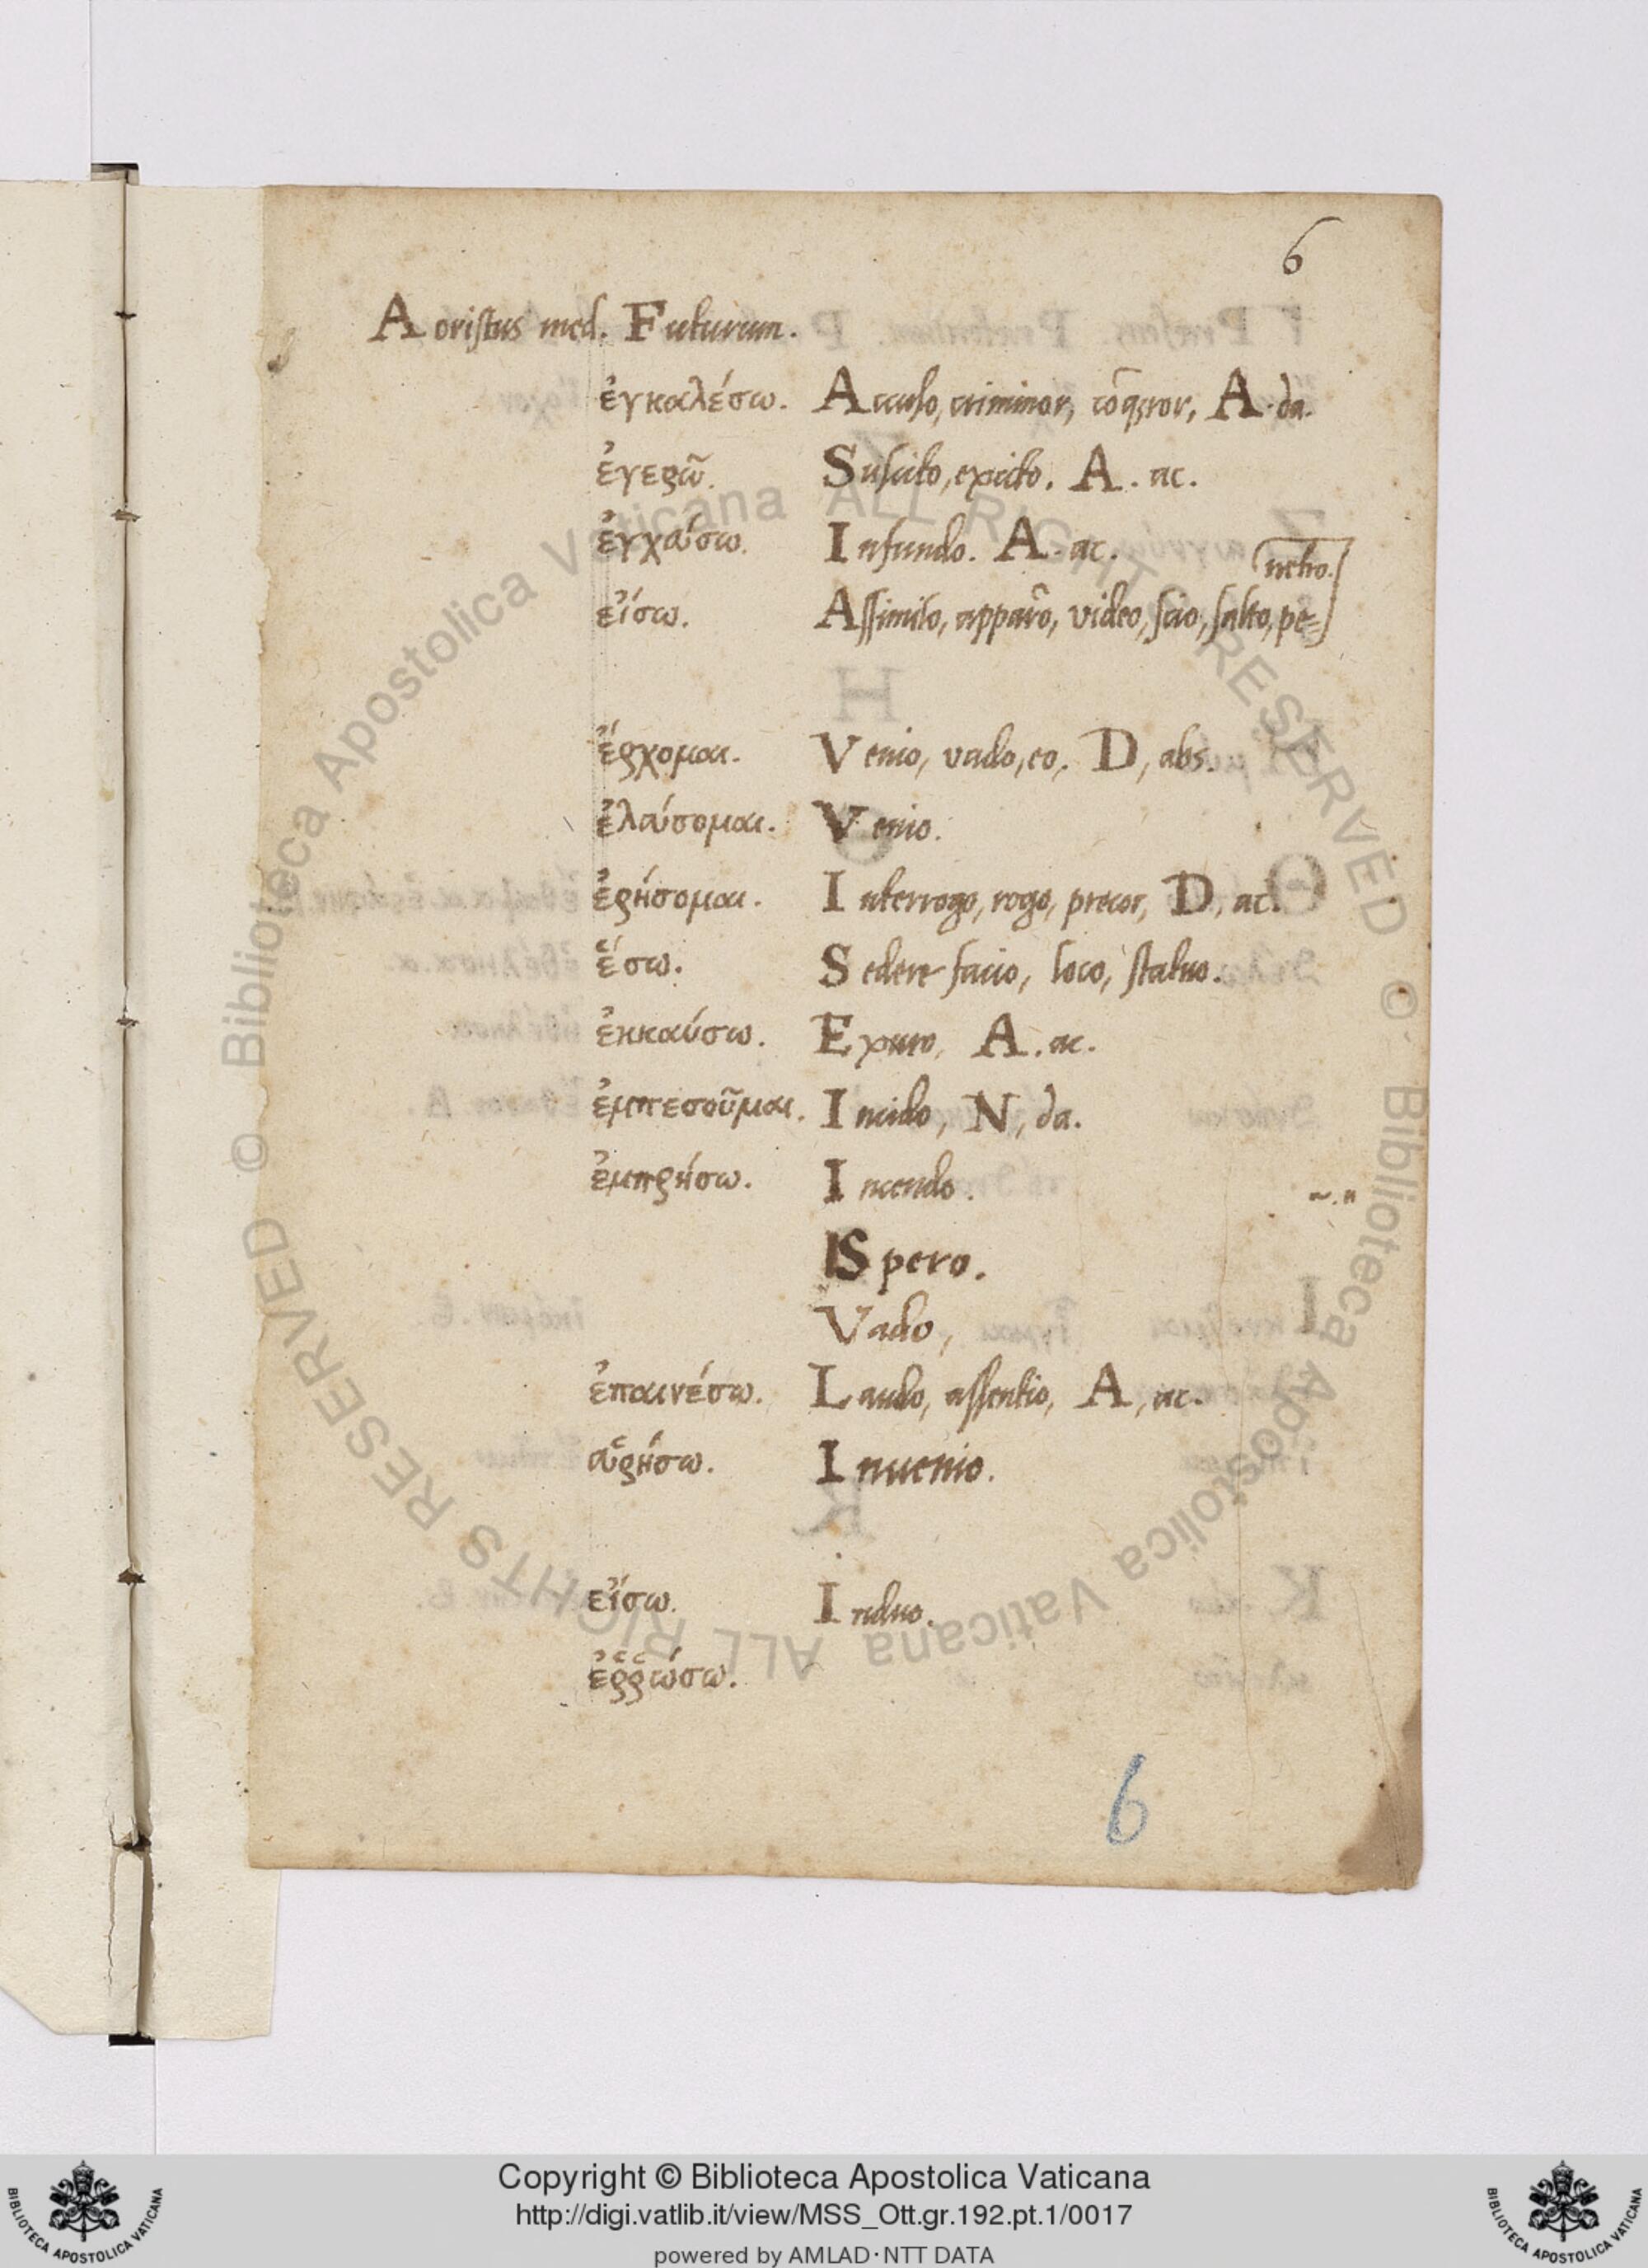 6
Aoristus med. Futurum.
ἐγκαλέσω. Accuso, criminor, cõqror, A. da.
ἐγερῶ. Suscito, excito. A. ac.
ἐγχεύσω. Infundo. A. ac.
netro.
εἴσω. Assimilo, apparẽo, video, scio, salto, pe=
ἔρχομαι. Venio, vado, eo, D, abs.
ἐλεύσομαι. Venio.
ἐρήσομαι. Interrogo, rogo, precor, D, ac.
ἕσω. Sedere facio, loco, statuo.
ἐκκαύσω. Exuro, A. ac.
ἐμπεσοῦμαι. Incido, N, da.
ἐμπρήσω. Incendo.
Spero.
Vado,
ἐπαινέσω. Laudo, assentio, A, ac.
εὑρήσω. Inuenio.
εἵσω. Induo.
ἐῤῥώσω.
6
© Biblioteca Apostolica Vaticana ALL RIGHTS RESERVED
© Biblioteca Apostolica Vaticana ALL RIGHTS RESERVED
Copyright © Biblioteca Apostolica Vaticana
http://digi.vatlib.it/view/MSS_Ott.gr.192.pt.1/0017
powered by AMLAD·NTT DATA
BIBLIOTECA APOSTOLICA VATICANA
BIBLIOTECA APOSTOLICA VATICANA